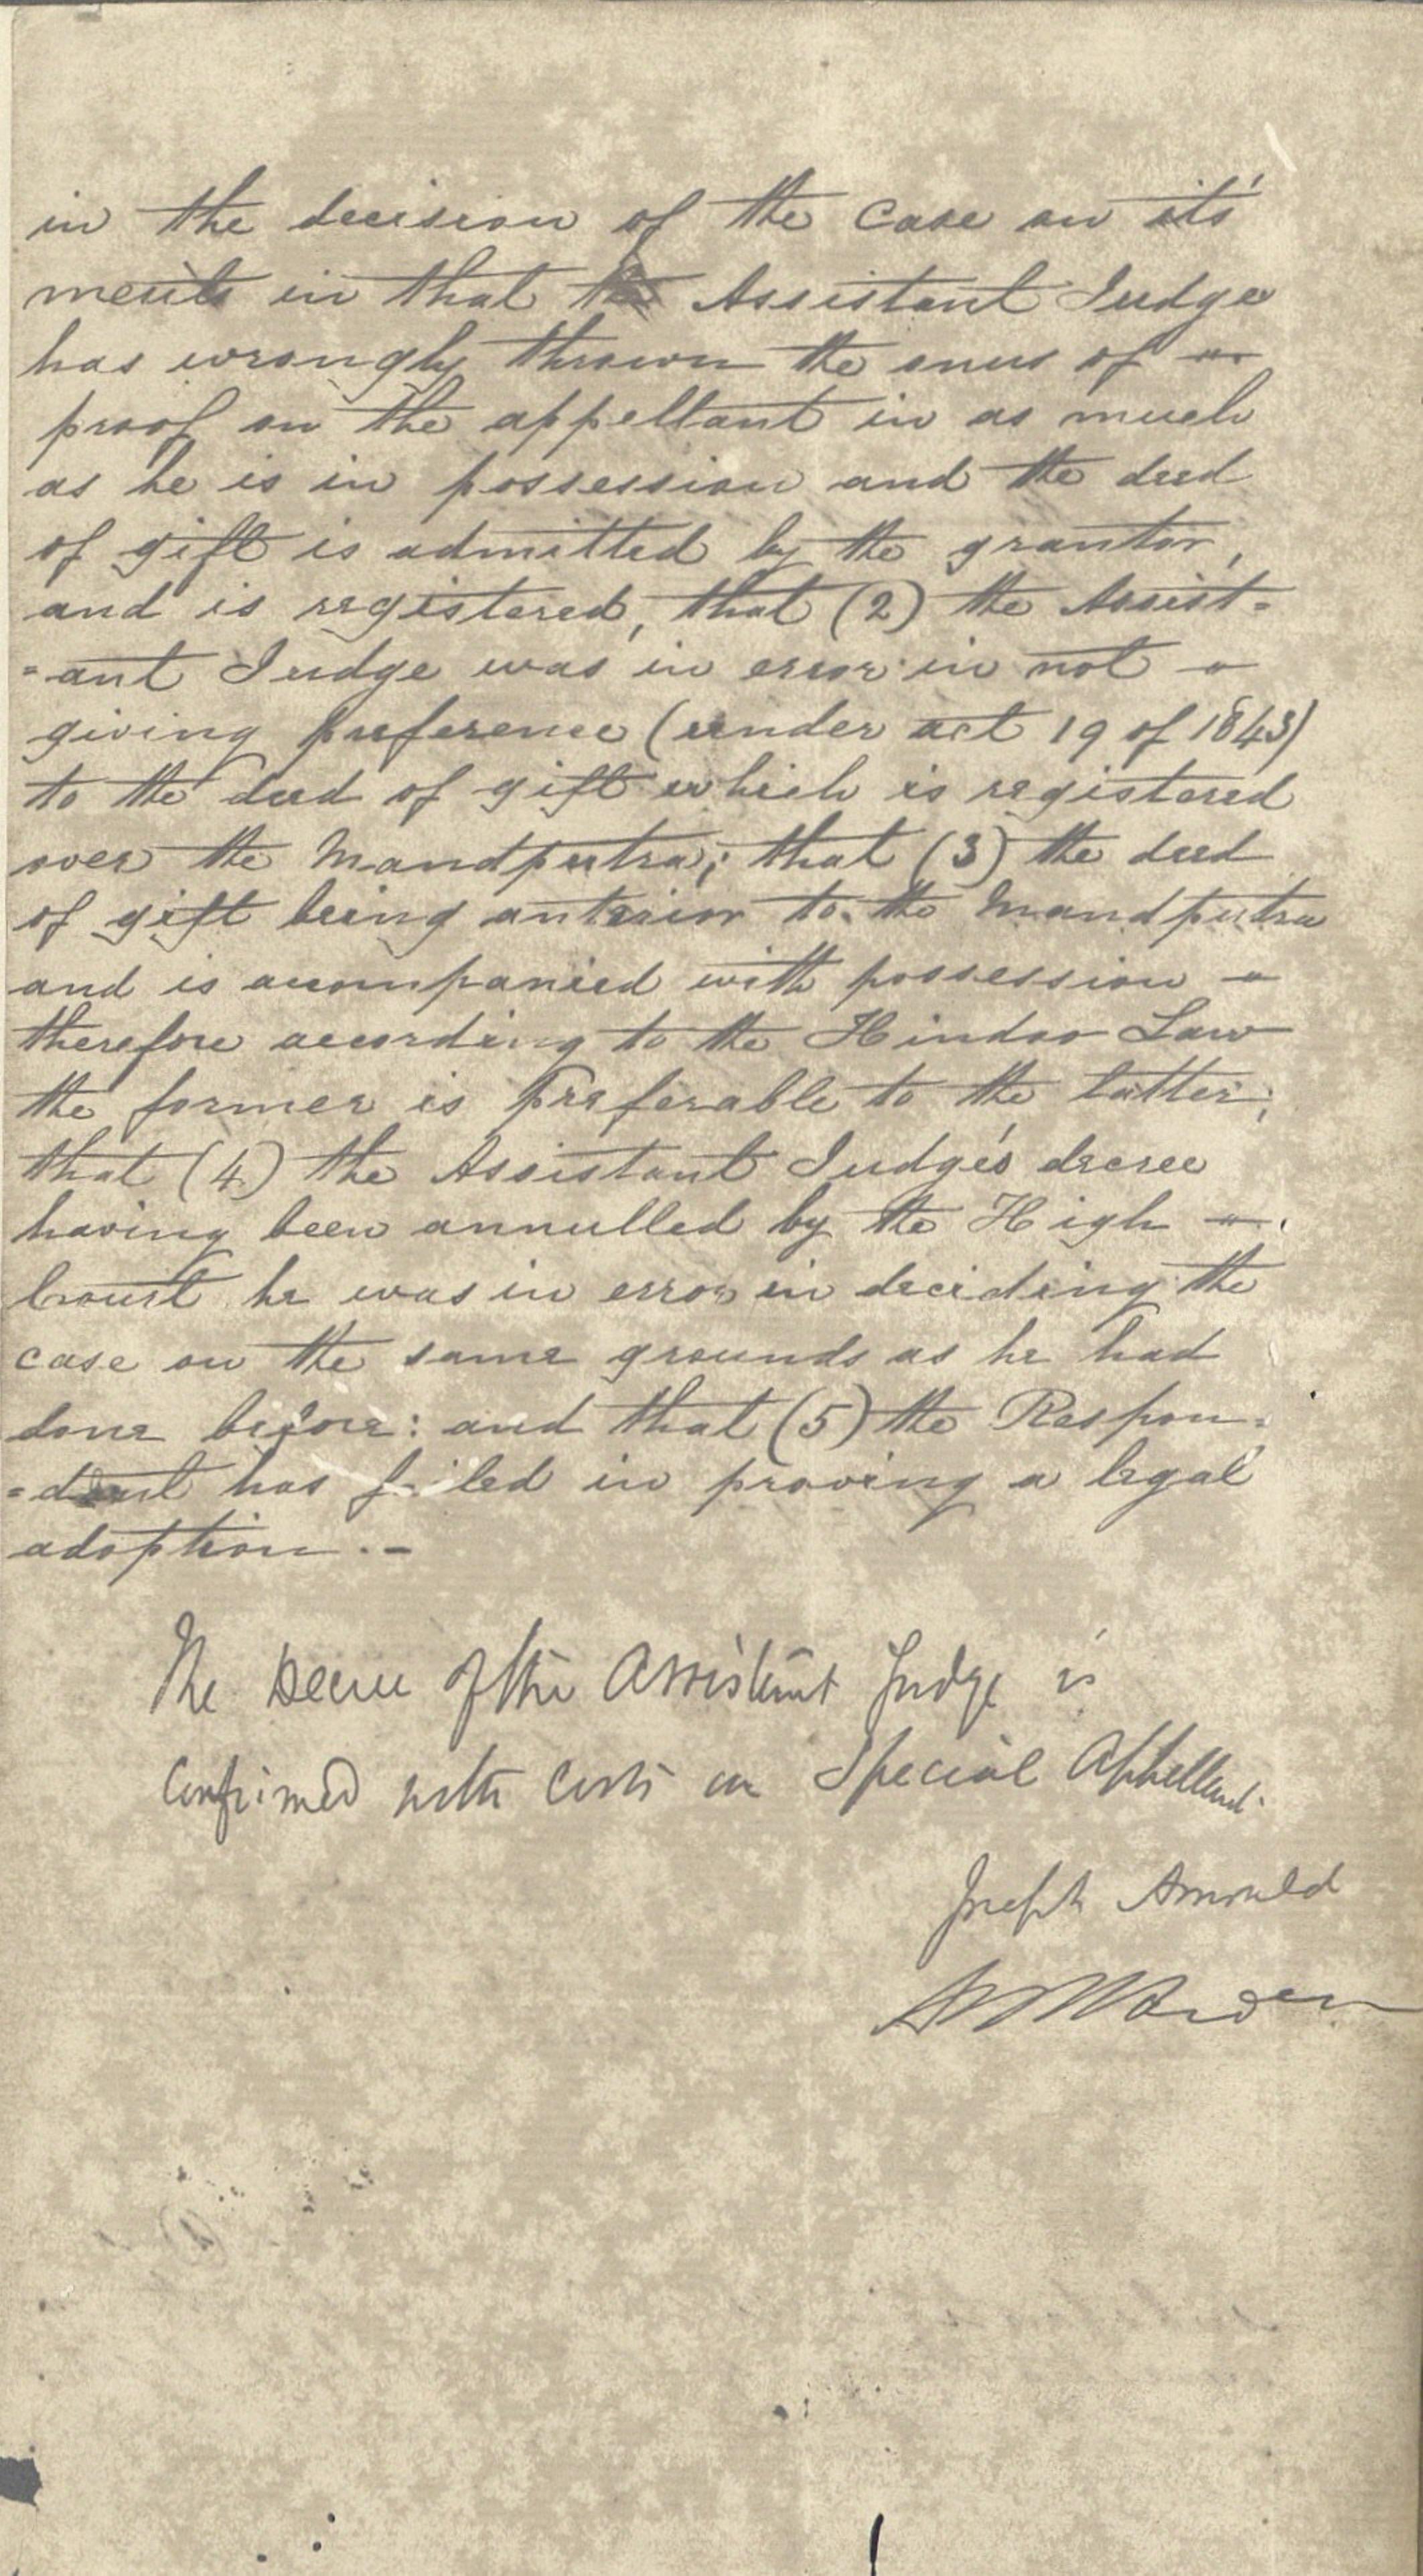 in the decision of the case on it's
merits in that the Assistant Judge
has wrongly thrown the onus of
proof on the appellant in as much
as he is in possession and the deed
of gift is admitted by the grantor,
and is registered, that (2) the Assist=
=ant Judge was in error in not
giving preference (under act 19 of 1843)
to the deed of gift which is registered
over the Mandputra; that (3) the deed
of gift being anterior to the Mandputra
and is accompanied with possession
therefore according to the Hindoo Law
the former is preferable to the latter;
that (4) the Assistant Judge's decree
having been annulled by the High
Court he was in error in deciding the
case on the same grounds as he had
done before: and that (5) the Respon=
=dent has filed in proving a legal
adoption.-
The Decree of the Assistant Judge is
Confirmed with Costs on Special Appellant.
Joseph Arnould